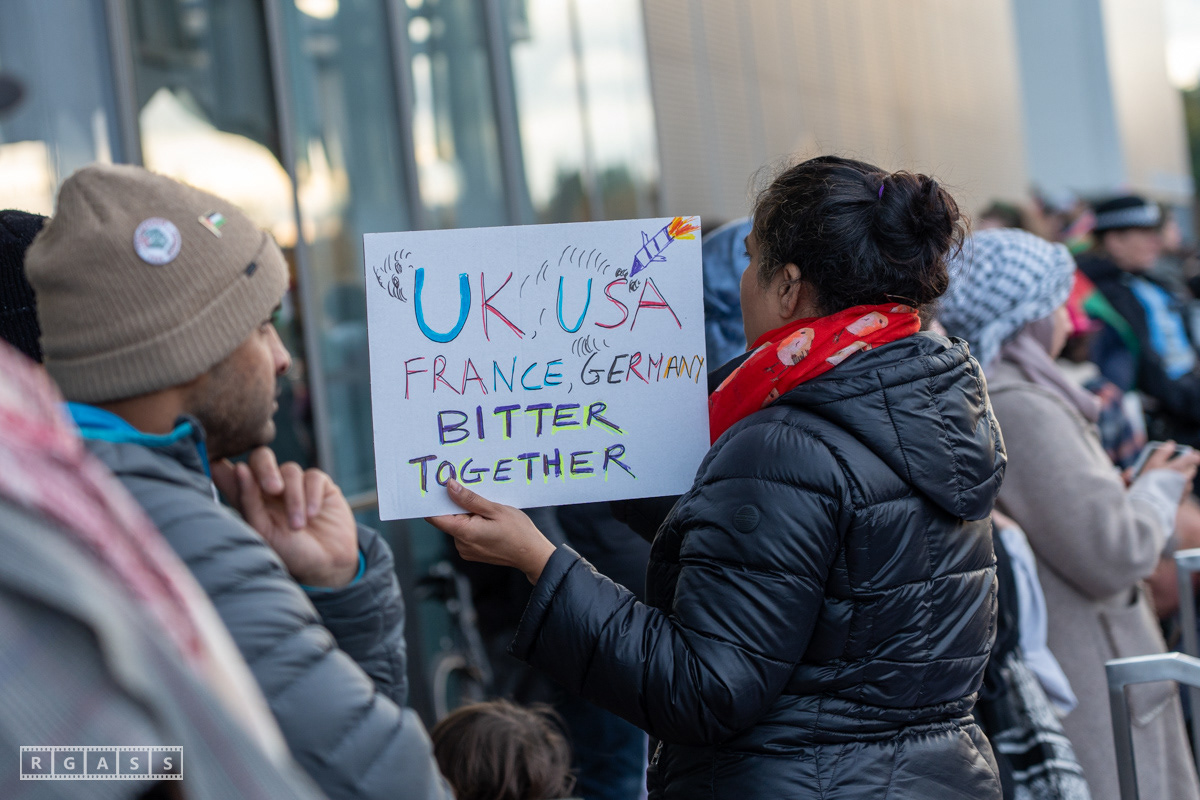 UK, USA
FRANCE, GERMANY
BITTER
TOGETHER
RGASS